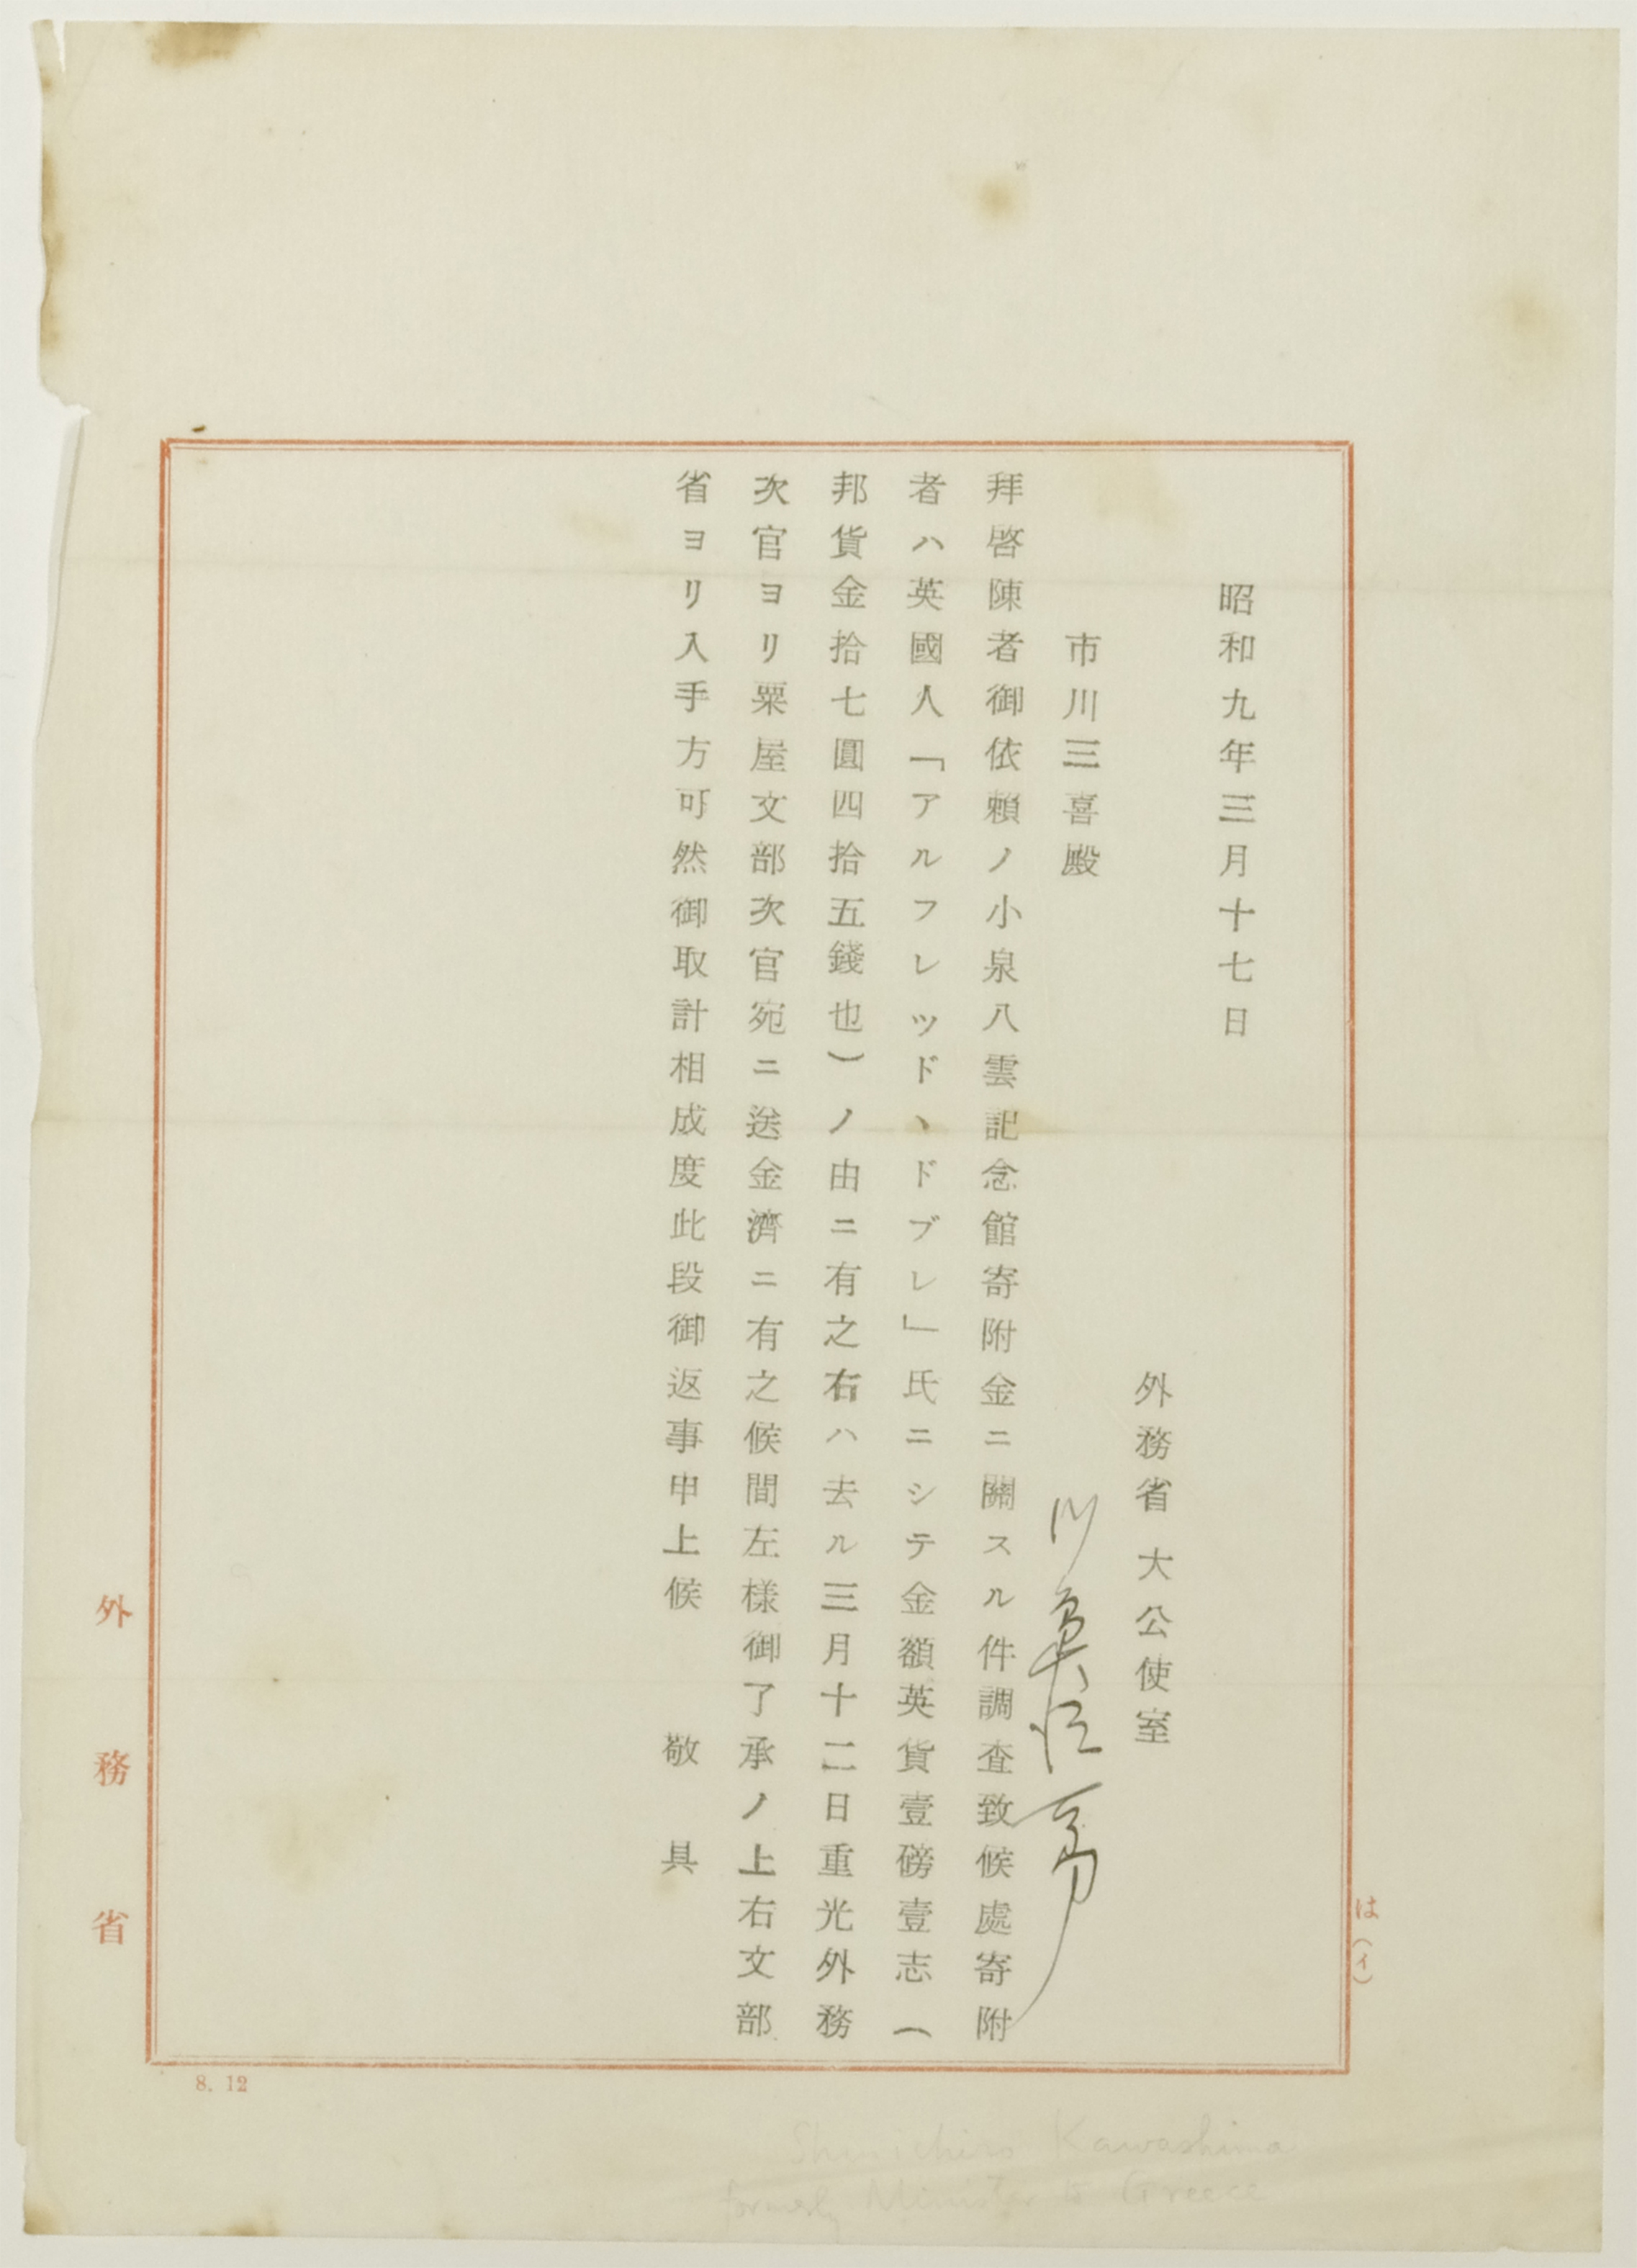 昭和九年三月十七日
外務省大公使室
川
市川三喜殿
拜啓陳者御依賴ノ小泉八雲記念館寄附金ニ關スル件調査致候處寄附
者ハ英國人「アルフレツド、ドブレ」氏ニシテ金額英貨壹磅壹志（
邦貨金拾七圓四拾五錢也）ノ由ニ有之右ハ去ル三月十二日重光外務
次官ヨリ粟屋文部次官宛ニ送金濟ニ有之候間左樣御了承ノ上右文部
省ヨリ入手方可然御取計相成度此段御返事申上候　敬具
は（イ）
外務省
8. 12
Shunichiro Kawashima
formerly Minister to Greece